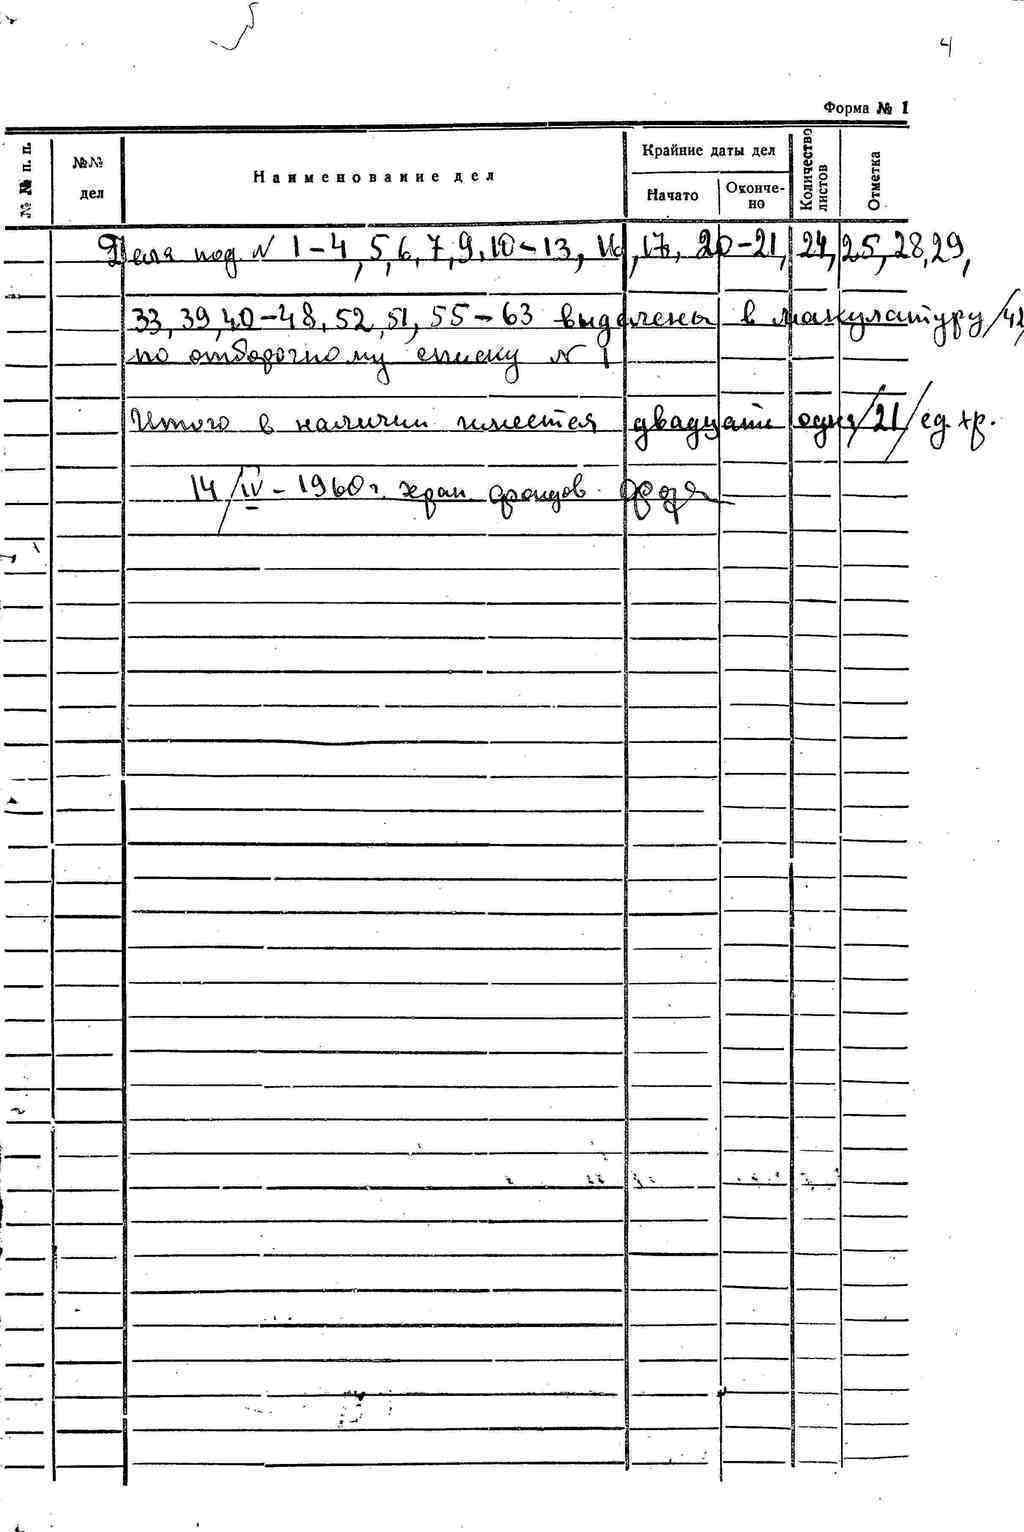 4
Форма № 1
№№ п. п.
№№ дел
Наименование дел
Крайние даты дел
Начато
Окончено
Количество листов
Отметка
Дела под N 1-4, 5, 6, 7, 9, 10-13, 16, 17, 20-21, 24, 25, 28, 29,
33, 39, 40-48, 52, 51, 55-63 выделены в макулатуру /42
по отборочному списку N 1
Итого в наличии имеется двадцать одна /21/ ед. хр.
14/IV-1960 г. хран. фондов